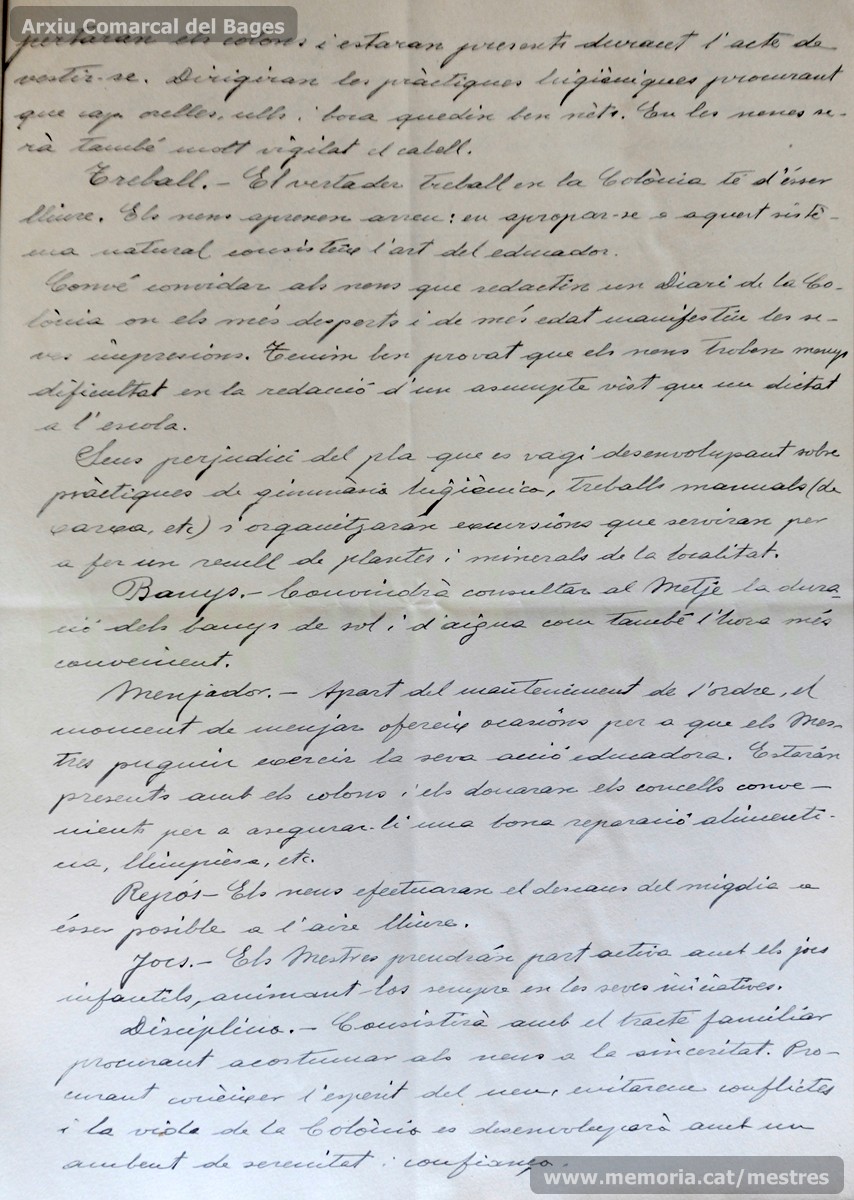 Arxiu Comarcal del Bages
pertaran els colons i estaran presents durant l'acte de
vestir-se. Dirigiran les pràctiques higièniques procurant
que cap, orelles, ulls i boca quedin ben nets. En les nenes se-
rà també molt vigilat el cabell.
Treball.- El vertader treball en la Colònia té d'ésser
lliure. Els nens aprenen arreu: en apropar-se a aquest sistè-
ma natural consisteix l'art del educador.
Convé convidar als nens que redactin un Diari de la Co-
lònia on els més desperts i de més edat manifestin les se-
ves impresions. Tenim ben provat que els nens troben menys
dificultat en la redacció d'un asumpte vist que un dictat
a l'escola.
Sens perjudici del pla que es vagi desenvolupant sobre
pràctiques de gimnàsia higiènica, treballs manuals (de
xarxa, etc) s'organitzaràn excursións que serviran per
a fer un recull de plantes i minerals de la localitat.
Banys.- Convindrà consultar al Metje la dura-
ció dels banys de sol i d'aigua com també l'hora més
convenient.
Menjador.- Apart del manteniment de l'ordre, el
moment de menjar ofereix ocasións per a que els Mes-
tres puguin exercir la seva acció educadora. Estaràn
presents amb els colons i els donaran els concells conve-
nients per a asegurar-li una bona reparació alimenti-
cia, llimpiesa, etc.
Repós- Els nens efectuaran el descans del migdia a
ésser posible a l'aire lliure.
Jocs.- Els Mestres prendràn part activa amb els jocs
infantils, animant-los sempre en les seves iniciatives.
Disciplina.- Consistirà amb el tracte familiar
procurant acostumar als nens a la sinceritat. Pro-
curant conèixer l'esperit del nen, evitarem conflictes
i la vida de la Colònia es desenvoluparà amb un
ambent de serenitat i confiança.
www.memoria.cat/mestres